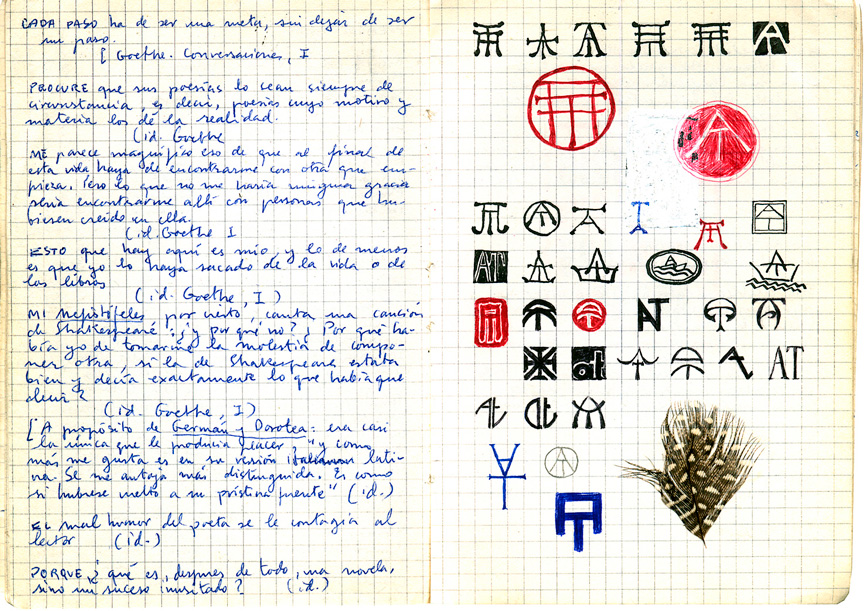 CADA PASO ha de ser una meta, sin dejar de ser
un paso.
[Goethe. Conversaciones, I
PROCURE que sus poesías lo sean siempre de
circunstancia, es decir, poesías cuyo motivo y
materia los dé la realidad.
(id. Goethe
ME parece magnífico eso de que al final de
esta vida haya de encontrarme con otra que em-
pieza. Pero lo que no me haría ninguna gracia
sería encontrarme allí con personas que hu-
biesen creído en ella.
(id. Goethe I
ESTO que hay aquí es mío, y lo de menos
es que yo lo haya sacado de la vida o de
los libros
(id. Goethe, I)
MI Mefistófeles, por cierto, canta una canción
de Shakespeare: ¿y por qué no? ¿Por qué ha-
bía yo de tomarme la molestia de compo-
ner otra, si la de Shakespeare estaba
bien y decía exactamente lo que había que
decir?
(id. Goethe, I)
[A propósito de Germán y Dorotea: era casi
la única que le producía placer "y como
más me gusta es en su versión lati-
na. Se me antoja más distinguida. Es como
si hubiese vuelto a su prístina fuente" (id.)
EL mal humor del poeta se le contagia al
lector (id.)
PORQUE, ¿qué es, después de todo, una novela,
sino un suceso inusitado? (id.)
AT
at
AT
At
at